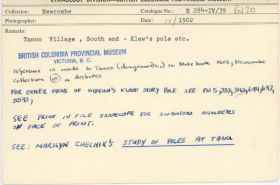 ETHNOLOGY DIVISION—BRITISH COLUMBIA PROVINCIAL MUSEUM
Collection Newcombe Catalogue No. E 284-IV/39 PN20
Photographer Date /1902
Remarks:
Tanoo Village, South end - Klew's pole etc.
BRITISH COLUMBIA PROVINCIAL MUSEUM
VICTORIA, B.C.
reference is made to Tanoo in Note book Newcombe
collection in Archives
FOR OTHER VIEWS OF FLOOD STORY POLE SEE PN'S
SEE PRINT IN FILE ENVELOPE FOR SWANTON NUMBERS
ON FACE OF PRINT.
SEE: MARILYN CHECHIK'S STUDY OF POLES AT TANU